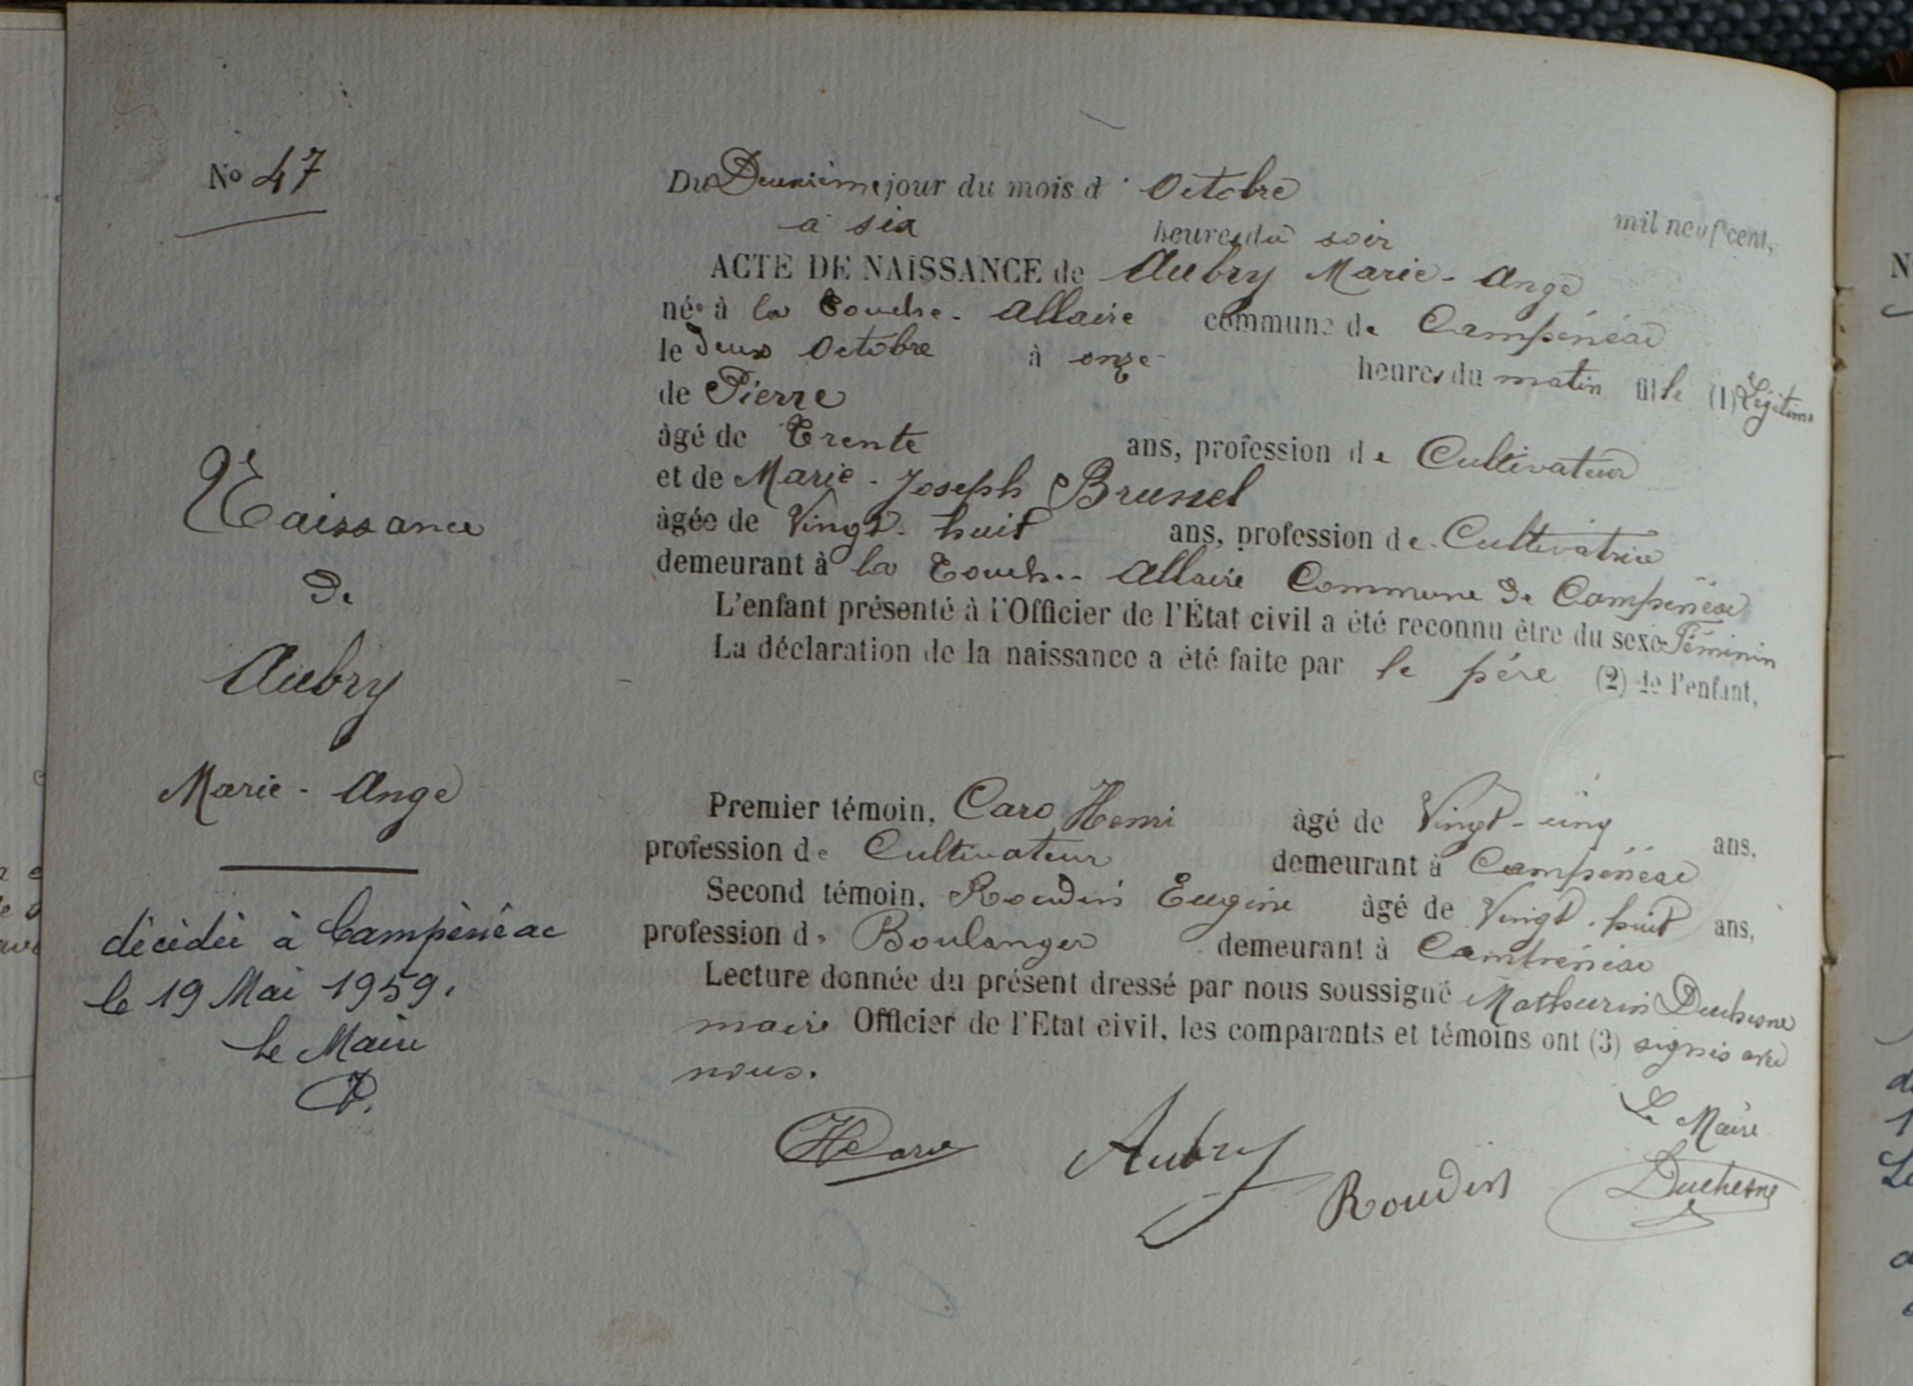 No 47
Naissance
de
Aubry
Marie-Ange
décédée à Campénéac
le 19 Mai 1959.
Le Maire
Du Deuxième jour du mois d'Octobre mil neuf cent,
à six heures du soir
ACTE DE NAISSANCE de Aubry Marie-Ange
née à la Touche-Allaire commune de Campénéac
le deux Octobre à onze heures du matin fille (1) Légitime
de Pierre
âgé de Trente ans, profession de Cultivateur
et de Marie-Joseph Brunel
âgée de Vingt-huit ans, profession de Cultivatrice
demeurant à la Touche-Allaire Commune de Campénéac
L'enfant présenté à l'Officier de l'État civil a été reconnu être du sexe Féminin
La déclaration de la naissance a été faite par le père (2) de l'enfant,
Premier témoin, Caro Henri âgé de Vingt-cinq ans,
profession de Cultivateur demeurant à Campénéac
Second témoin, Roudin Eugène âgé de Vingt-huit ans,
profession de Boulanger demeurant à Campénéac
Lecture donnée du présent dressé par nous soussigné Mathurin Duchesne
maire Officier de l'Etat civil, les comparants et témoins ont (3) signés avec
nous.
Le Maire
HCaro Aubry Roudin Duchesne